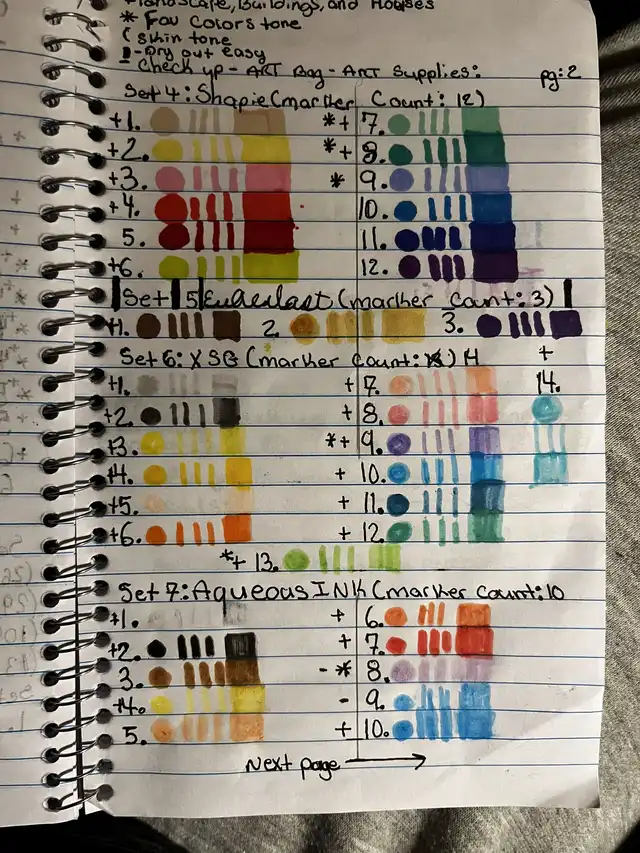 +landscape, Buildings, and Houses
* Fav Colors tone
( skin tone
- Dry out easy
- Check up - ART Bag - ART Supplies: pg: 2
Set 4: Shapie (marker Count: 12)
+1. *+ 7.
+2. *+ 8.
+3. * 9.
+4. 10.
5. 11.
+6. 12.
Set 5 (marker Count: 3)
+1. 2. 3.
Set 6: X SG (marker Count: 14
+1. + 7. + 14.
+2. + 8.
+3. *+ 9.
+4. + 10.
+5. + 11.
+6. + 12.
*+ 13.
Set 7: Aqueous INK (marker count: 10
+1. + 6.
+2. + 7.
3. - * 8.
+4. - 9.
5. + 10.
Next page